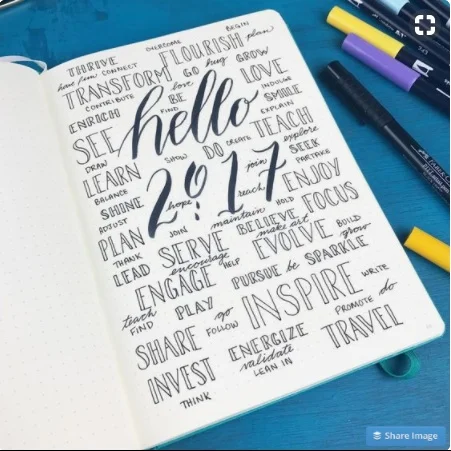 OVERCOME BEGIN
THRIVE FLOURISH plan
have fun CONNECT hug
TRANSFORM GO GROW
CONTRIBUTE love LOVE
ENRICH BE INDULGE
FIND SMILE
SEE hello EXPLAIN
DRAW SHOW DO CREATE TEACH
LEARN explore
BALANCE join SEEK
SHINE hope 2017 PARTAKE
ADJUST reach ENJOY
PLAN JOIN maintain HOLD FOCUS
THANK SERVE BELIEVE BUILD
LEAD encourage make art grow
ENGAGE HELP EVOLVE
PURSUE be SPARKLE
teach PLAY INSPIRE WRITE
FIND go PROMOTE do
SHARE FOLLOW
ENERGIZE TRAVEL
INVEST validate
LEAN IN
THINK
Share Image